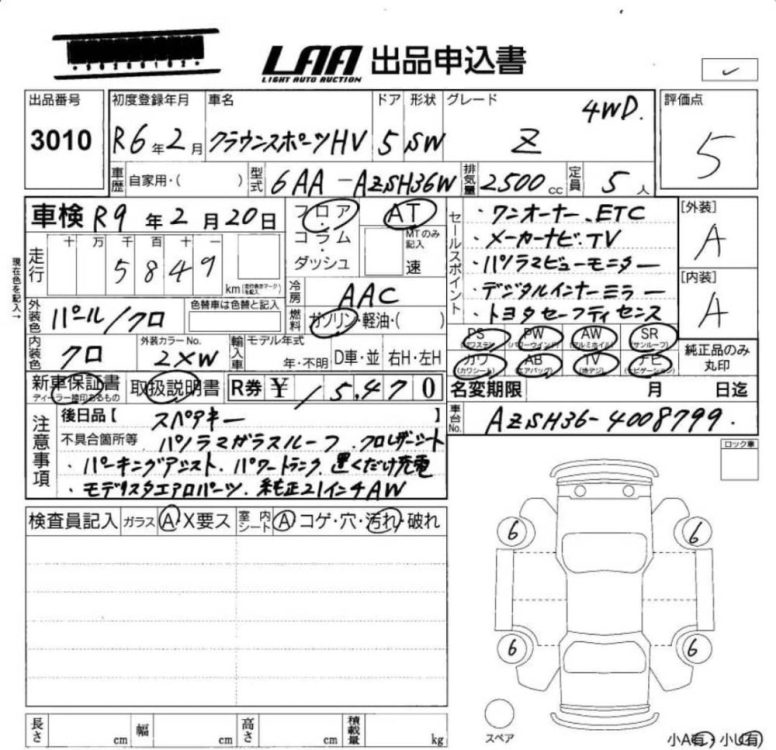 LAA 出品申込書
LIGHT AUTO AUCTION
出品番号 初度登録年月 車名 ドア 形状 グレード 4WD. 評価点
3010 R6年2月 クラウンスポーツHV 5 SW Z 5
車歴 自家用・( ) 型式 6AA-AZSH36W 排気量 2500cc 定員 5人
車検 R9年2月20日 フロア AT セールスポイント ・ワンオーナー.ETC [外装]
コラム MTのみ記入 ・メーカーナビ.TV A
走行 十 万 千 百 十 一 ダッシュ 速 ・パノラマビューモニター
5849 km (走行疑義マークを記入) ・デジタルインナーミラー [内装]
現在色を記入→ 冷房 AAC ・トヨタセーフティセンス A
外装色 パール/クロ 色替車は色替と記入 燃料 ガソリン・軽油・( )
PS (パワステ) PW (パワーウインド) AW (アルミホイル) SR (サンルーフ)
内装色 クロ 外装カラーNo. 2XW 輸入車 モデル年式 年・不明 D車・並 右H・左H
カワ (カワシート) AB (エアバッグ) TV (地デジ) ナビ (ナビゲーション) 純正品のみ丸印
新車保証書 取扱説明書 R券 ¥ 15,470 名変期限 月 日迄
ディーラー捺印あるもの
注意事項 後日品【 スペアキー 】 車台No. AZSH36-4008799.
不具合箇所等 パノラマガラスルーフ.クロレザーシート
・パーキングアシスト.パワートランク.置くだけ充電
・モデリスタエアロパーツ.純正21インチAW
ロック車
検査員記入 ガラス A・X要ス 室内シート A コゲ・穴・汚れ・破れ
6 6
6 6
スペア
長さ cm 幅 cm 高さ cm 積載量 kg
小A有・小U有